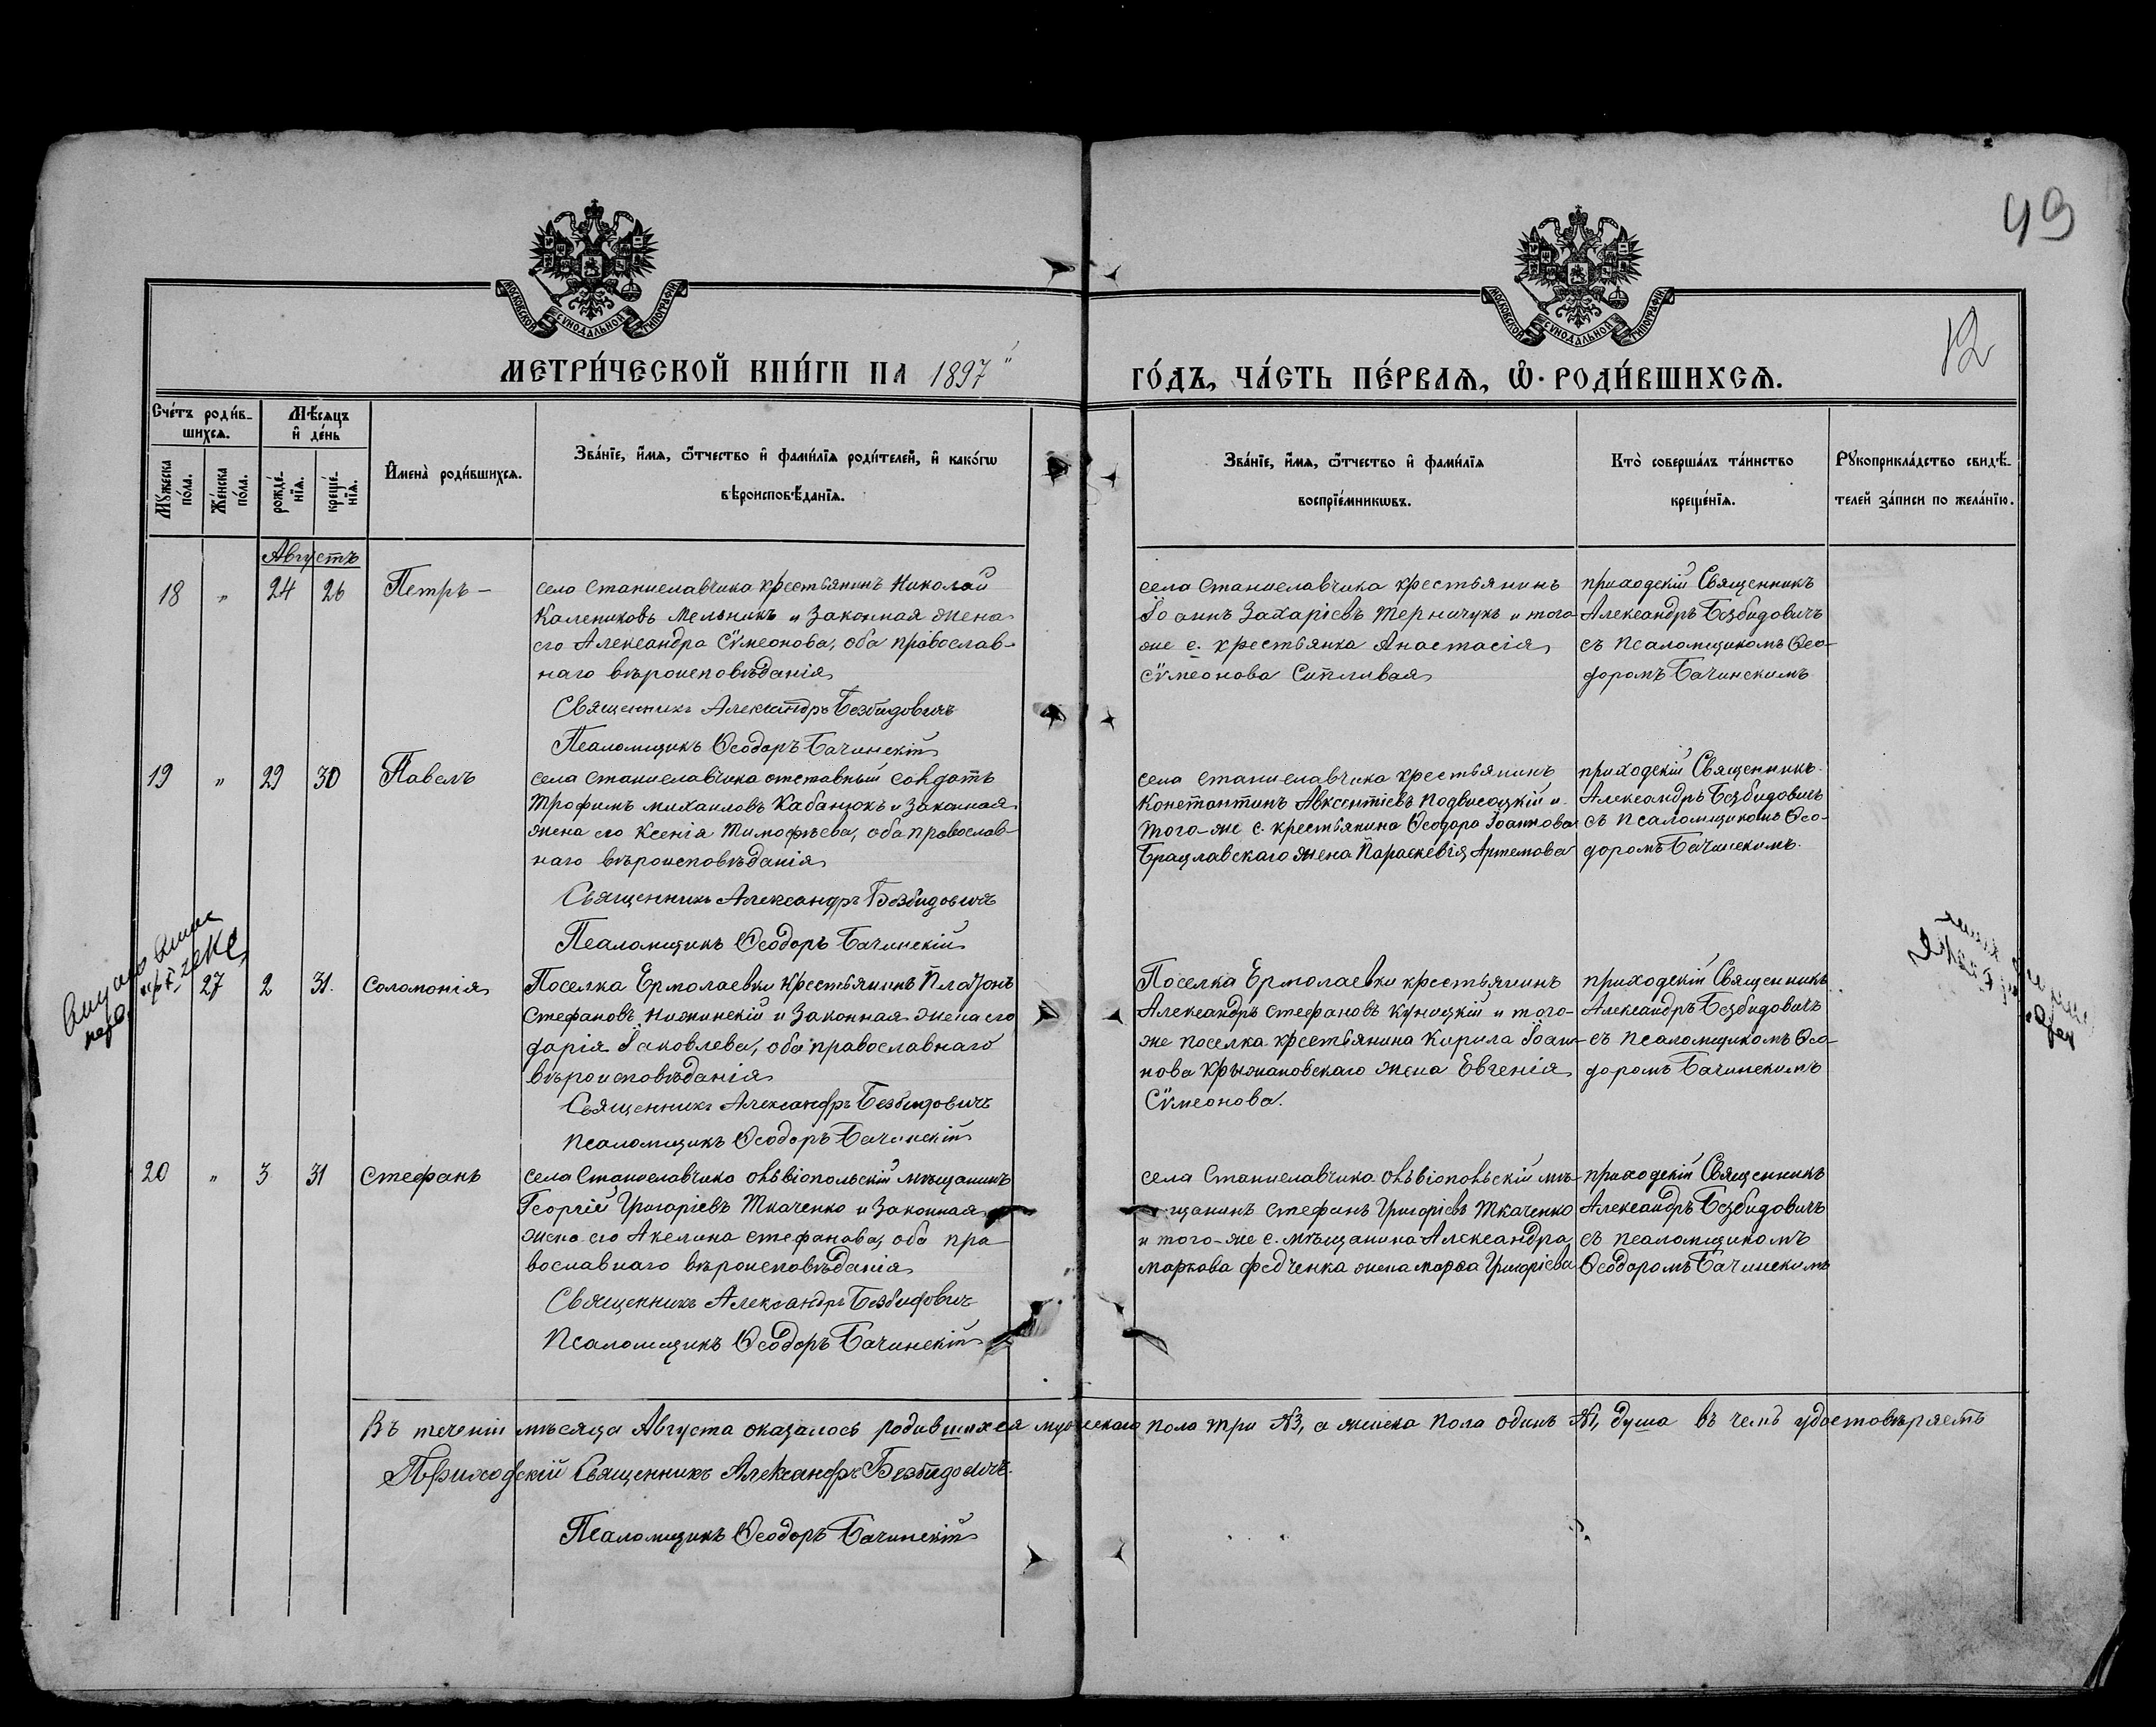 49
12
МОСКОВСКОЙ СУНОДАЛЬНОЙ ТИПОГРАФІИ
МОСКОВСКОЙ СУНОДАЛЬНОЙ ТИПОГРАФІИ
МЕТРИ́ЧЕСКОЙ КНИ́ГИ НА 1897 ГО́ДЪ, ЧА́СТЬ ПЕ́РВАѦ, Ѡ҆ РОДИ́ВШИХСѦ.
Сче́тъ роди́в-
шихсѧ.
Мꙋ́жеска по́ла.
Же́нска по́ла.
Мѣ́сѧцъ
и҆ де́нь
рожде́-
нїѧ.
креще́-
нїѧ.
И҆мена̀ роди́вшихсѧ.
Зва́нїе, и҆́мѧ, ѻ҆́тчество и҆ фами́лїѧ роди́телей, и҆ како́гѡ
вѣроисповѣ́данїѧ.
Зва́нїе, и҆́мѧ, ѻ҆́тчество и҆ фами́лїѧ
воспрїе́мникѡвъ.
Кто̀ соверша́лъ та́инство
креще́нїѧ.
Рꙋкоприкла́дство свидѣ́-
телей за́писи по жела́нїю.
Августъ
18 " 24 26 Петръ –
село Станиславчика крестьянинъ Николай
Калениковъ Мельникъ и законная жена
его Александра Сѵмеонова, оба православ-
наго вѣроисповѣданія
Священникъ Александръ Безбидовичъ
Псаломщикъ Ѳеодоръ Бачинскій
села Станиславчика крестьянинъ
Іоаннъ Захаріевъ Терничукъ и того
же с. крестьянка Анастасія
Сѵмеонова Сипливая
приходскій Священникъ
Александръ Безбидовичъ
съ псаломщикомъ Ѳео-
доромъ Бачинскимъ
19 " 29 30 Павелъ
села Станиславчика отставный солдатъ
Трофимъ Михаиловъ Кабанюкъ и законная
жена его Ксенія Тимофѣева, оба православ-
наго вѣроисповѣданія
Священникъ Александръ Безбидовичъ
Псаломщикъ Ѳеодоръ Бачинскій
села Станиславчика крестьянинъ
Константинъ Авксентіевъ Подвисоцкій и
того-же с. крестьянина Ѳеодора Іоаннова
Брацлавскаго жена Параскевія Артемова
приходскій Священникъ
Александръ Безбидовичъ
съ псаломщикомъ Ѳео-
доромъ Бачинскимъ.
27 2 31. Соломонія
Поселка Ермолаевки крестьянинъ Платонъ
Стефановъ Нижинскій и законная жена его
Дарія Іаковлева, оба православнаго
вѣроисповѣданія
Священникъ Александръ Безбидовичъ
Псаломщикъ Ѳеодоръ Бачинскій
Поселка Ермолаевки крестьянинъ
Александръ Стефановъ Куницкій и того-
же поселка крестьянина Кирила Іоан-
нова Крыжановскаго жена Евгенія
Сѵмеонова.
приходскій Священникъ
Александръ Безбидовичъ
съ псаломщикомъ Ѳео-
доромъ Бачинскимъ
20 " 3 31 Стефанъ
села Станиславчика Ольвіопольскій мѣщанинъ
Георгій Григоріевъ Ткаченко и законная
жена его Акелина Стефанова, оба пра-
вославнаго вѣроисповѣданія
Священникъ Александръ Безбидовичъ
Псаломщикъ Ѳеодоръ Бачинскій
села Станиславчика Ольвіопольскій мѣ-
щанинъ Стефанъ Григоріевъ Ткаченко
и того-же с. мѣщанина Александра
Маркова Федченка жена Марѳа Григоріева
приходскій Священникъ
Александръ Безбидовичъ
съ псаломщикомъ
Ѳеодоромъ Бачинскимъ
Въ теченіи мѣсяца Августа оказалось родившихся мужескаго пола три №3, а женска пола одинъ №1, душа въ чемъ удостовѣряетъ
Приходскій Священникъ Александръ Безбидовичъ.
Псаломщикъ Ѳеодоръ Бачинскій